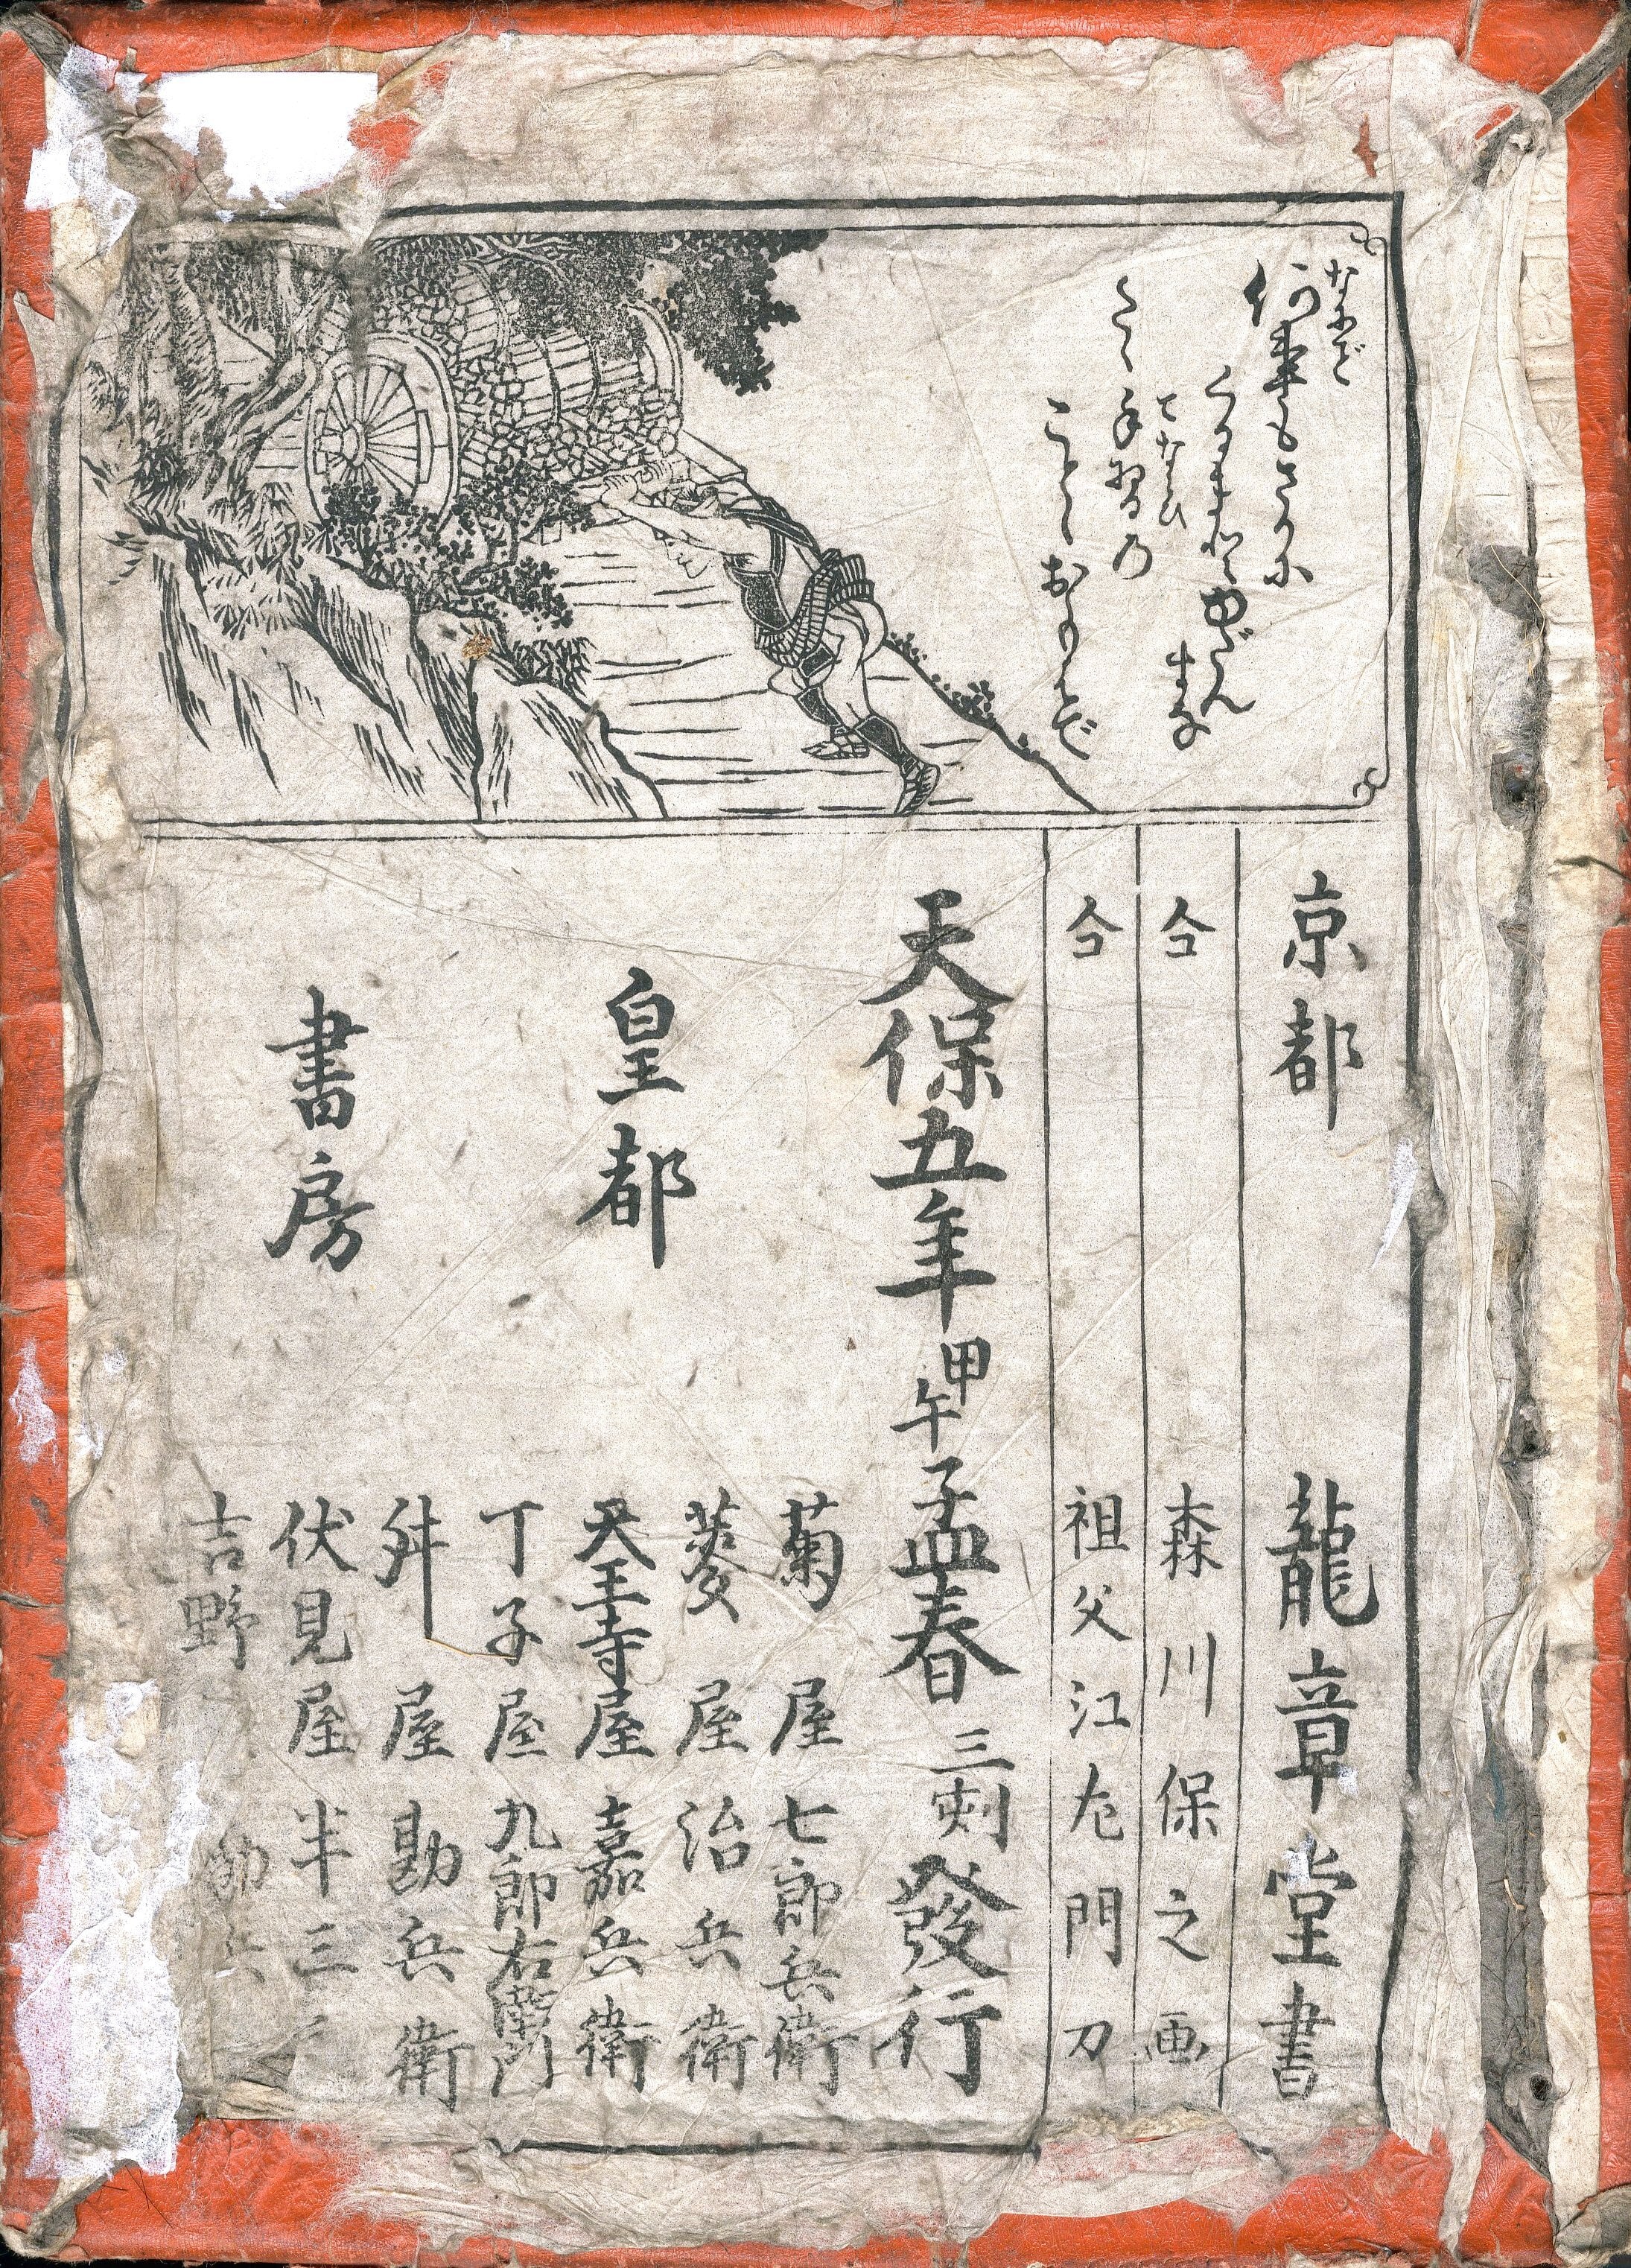 なにごと
何事もさかに
くるまぞゆだん
すな
てならひ
たゞ手習の
ことにおもへど
京都 龍章堂書
仝 森川保之画
仝 祖父江左門刀
天保五年甲午孟春三刻發行
皇都
書房
菊屋七郎兵衛
菱屋治兵衛
天王寺屋嘉兵衛
丁子屋九郎右衛門
舛屋勘兵衛
伏見屋半三
吉野 勘兵